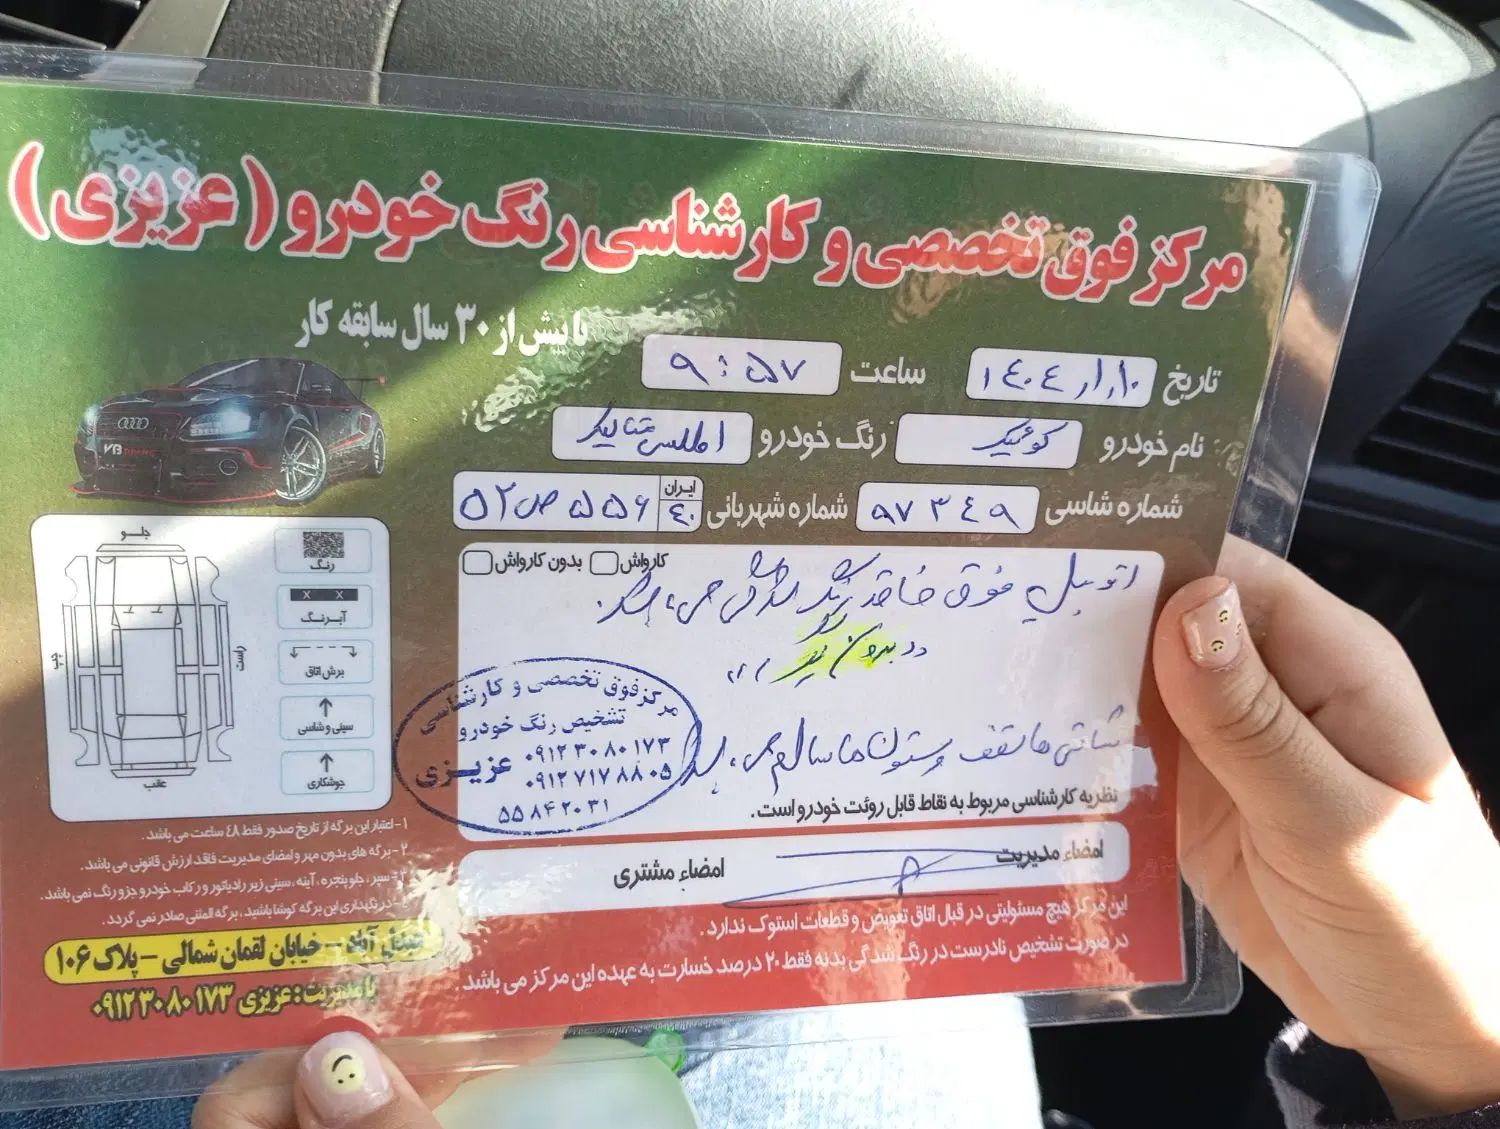 مرکز فوق تخصصی و کارشناسی رنگ خودرو (عزیزی)
با بیش از ۳۰ سال سابقه کار
تاریخ ۱۴۰۴/۱/۱۰ ساعت ۹:۵۷
نام خودرو کوئیک رنگ خودرو اطلسی متالیک
شماره شاسی ۹۷۳۴۹ شماره شهربانی ایران ۴۰ ۵۵۶ ص ۵۲
کارواش بدون کارواش
اتومبیل فوق فاقد رنگ شدگی می باشد.
بدون رنگ
شاسی ها سقف و ستون ها سالم می باشد
نظریه کارشناسی مربوط به نقاط قابل روئت خودرو است.
امضاء مدیریت امضاء مشتری
این مرکز هیچ مسئولیتی در قبال اتاق تعویض و قطعات استوک ندارد.
در صورت تشخیص نادرست در رنگ شدگی بدنه فقط ۲۰ درصد خسارت به عهده این مرکز می باشد.
مرکز فوق تخصصی و کارشناسی
تشخیص رنگ خودرو
۰۹۱۲۳۰۸۰۱۷۳
عزیزی
۰۹۱۲۷۱۷۸۸۰۵
۵۵۸۴۲۰۳۱
V8
جلو
چپ
راست
عقب
رنگ
X X
آبرنگ
برش اتاق
سینی و شاسی
جوشکاری
۱- اعتبار این برگه از تاریخ صدور فقط ۴۸ ساعت می باشد.
۲- برگه های بدون مهر و امضای مدیریت فاقد ارزش قانونی می باشد.
۳- سپر، جلو پنجره، آینه، سینی زیر رادیاتور و رکاب خودرو جزو رنگ نمی باشد.
۴- در نگهداری این برگه کوشا باشید، برگه المثنی صادر نمی گردد.
عبدل آباد - خیابان لقمان شمالی - پلاک ۱۰۶
با مدیریت: عزیزی ۰۹۱۲۳۰۸۰۱۷۳